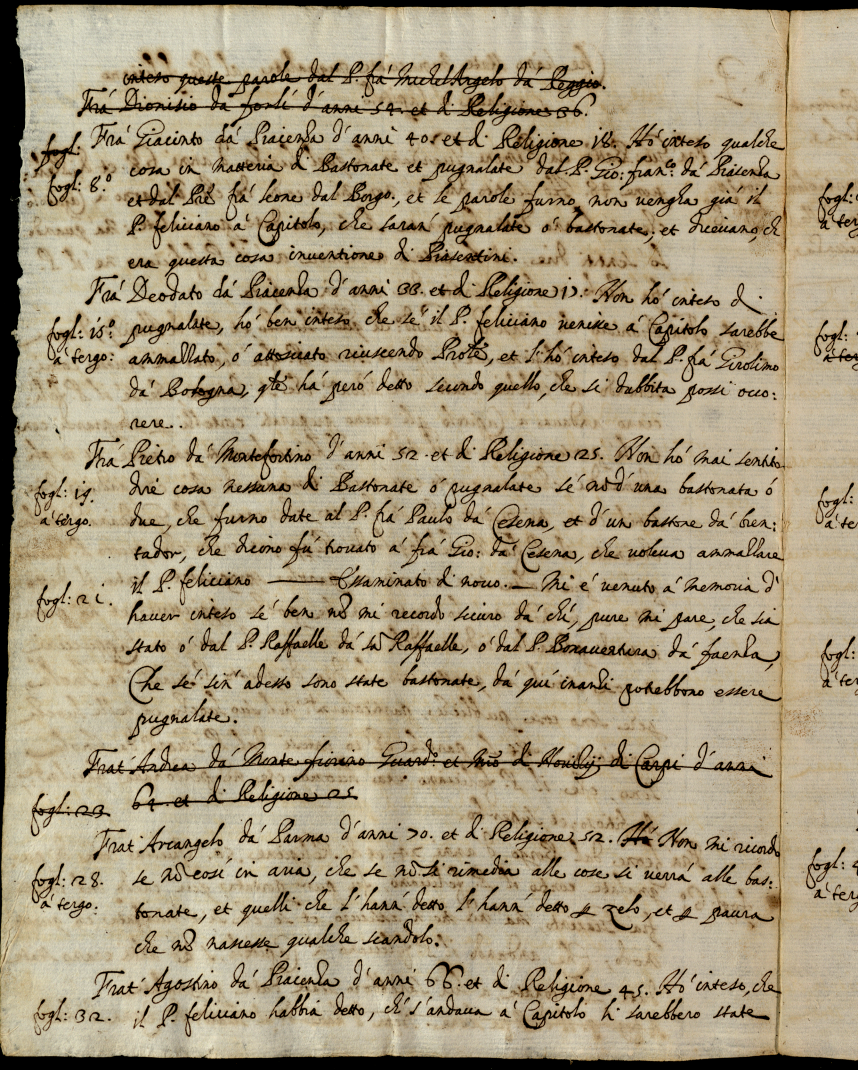 inteso queste parole dal P. frà Michel Angelo dà Reggio.
Frà Dionisio da forlì d'anni 54. et di Religione 36.
fogl:
Frà Giacinto dà Piacenza d'anni 40. et di Religione 18. Hò inteso qualche
fogl: 8.º
cosa in matteria di Bastonate et pugnalate dal P. Gio: fran.co dà Piasenza
et dal Prê frà leone dal Borgo, et le parole furno, non vengha già il
P. feliciano à Capitolo, che saran' pugnalate ò bastonate, et dicevano, ch'
era questa cosa inventione di Piasentini.
Frà Deodato dà Piacenza d'anni 33. et di Religione 17. Non hò inteso di
fogl: 15.º
à tergo:
pugnalate, hò ben inteso che se il P. feliciano venisse à Capitolo sarebbe
ammallato, ò attosicato riuscendo Prole, et l'hò inteso dal P. frà Girolimo
dà Bologna, qle hà però detto secondo quello, che si dubbita possi occo:
rere..
Frà Pietro dà Montefortino d'anni 52. et di Religione 25. Non hò mai sentito
fogl: 19.
à tergo.
dire cosa nessuna di Bastonate ò pugnalate se nõ d'una bastonata ò
due, che furno date al P. frà Paulo dà Cesena, et d'un bastone dà bien:
tador, che dicono fù trovato à frà Gio: dà Cesena, che voleva ammallare
fogl: 21.
il P. feliciano —— Essaminato di novo. — Mi è venuto à memoria d'
haver inteso se ben nõ mi recordo sicuro dà chi, pure mi pare, che sia
stato ò dal P. Raffaelle dà Sã Raffaelle, ò dal P. Bonaventura dà faenza,
Che se sin' adesso sono state bastonate, dà quì inanzi potrebbono essere
pugnalate.
Frat' Andrea dà Monte fiorino Guard.º et Mrõ di Novitij di Carpi d'anni
fogl: 23
64. et di Religione 25
Frat' Arcangelo dà Parma d'anni 70. et di Religione 52. Hò Non mi ricordo
fogl: 28.
à tergo:
se nõ così in aria, che se nõ si rimedia alle cose si verrà alle bas:
tonate, et quelli che l'hann' detto l'hann' detto p zelo, et p paura
che nõ nascesse qualche scandolo.
Frat' Agostino dà Piacenza d'anni 66. et di Religione 45. Hò inteso, che
fogl: 32.
il P. feliciano habbia detto, ch' s'andava à Capitolo li sarebbero state